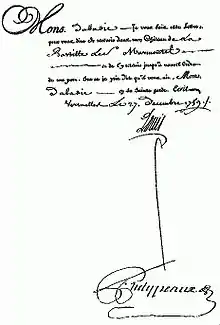 Mons. Dabadie je vous fais cette Lettre
pour vous dire de recevoir dans mon Château de La
Bastille Le Sr. Marmontel
et de L'y retenir jusqu'à nouvel Ordre
de ma part. Sur ce je prie Dieu qu'il vous ait, Mons.
Dabadie en sa Sainte garde. Ecrit à
Versailles Le 27. Decembre 1759./.
Louis
Phelypeaux